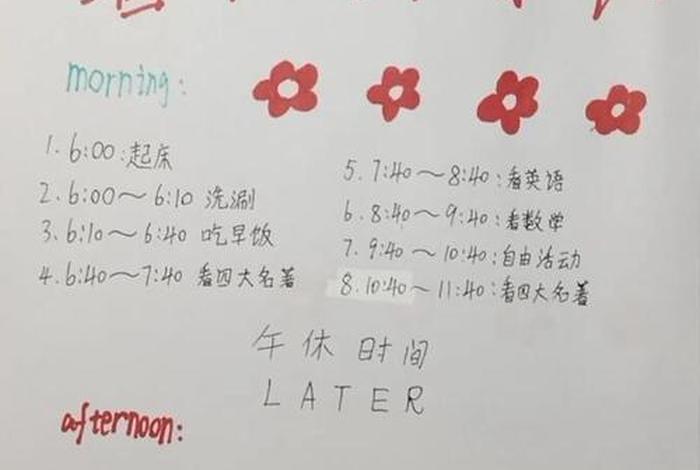 morning:
1. 6:00:起床
2. 6:00～6:10 洗涮
3. 6:10～6:40 吃早饭
4. 6:40～7:40 看四大名著
5. 7:40～8:40:看英语
6. 8:40～9:40:看数学
7. 9:40～10:40:自由活动
8. 10:40～11:40:看四大名著
午休时间
LATER
afternoon: